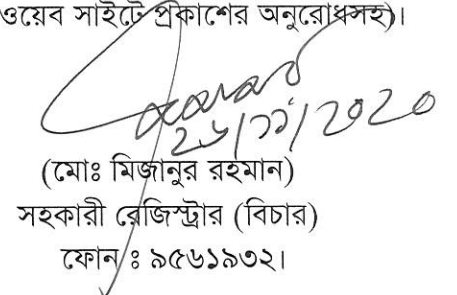 ওয়েব সাইটে প্রকাশের অনুরোধসহ)।
২৬/১১/২০২০
(মোঃ মিজানুর রহমান)
সহকারী রেজিস্ট্রার (বিচার)
ফোন ঃ ৯৫৬১৯৩২।